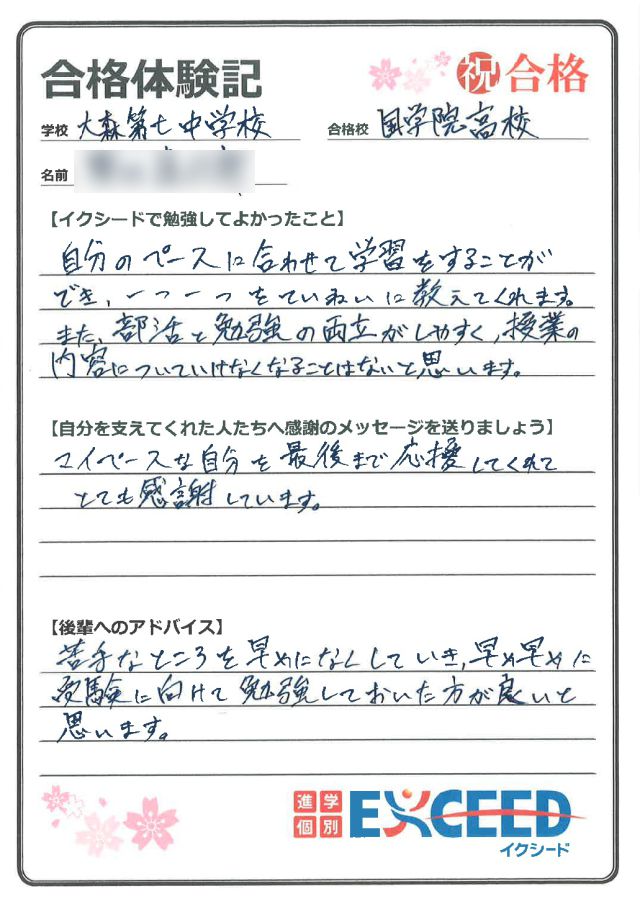 合格体験記
祝 合格
学校 大森第七中学校
合格校 國学院高校
名前
【イクシードで勉強してよかったこと】
自分のペースに合わせて学習をすることが
でき、一つ一つをていねいに教えてくれます。
また、部活と勉強の両立がしやすく、授業の
内容についていけなくなることはないと思います。
【自分を支えてくれた人たちへ感謝のメッセージを送りましょう】
マイペースな自分を最後まで応援してくれて
とても感謝しています。
【後輩へのアドバイス】
苦手なところを早めになくしていき、早め早めに
受験に向けて勉強しておいた方が良いと
思います。
進学
個別
EXCEED
イクシード